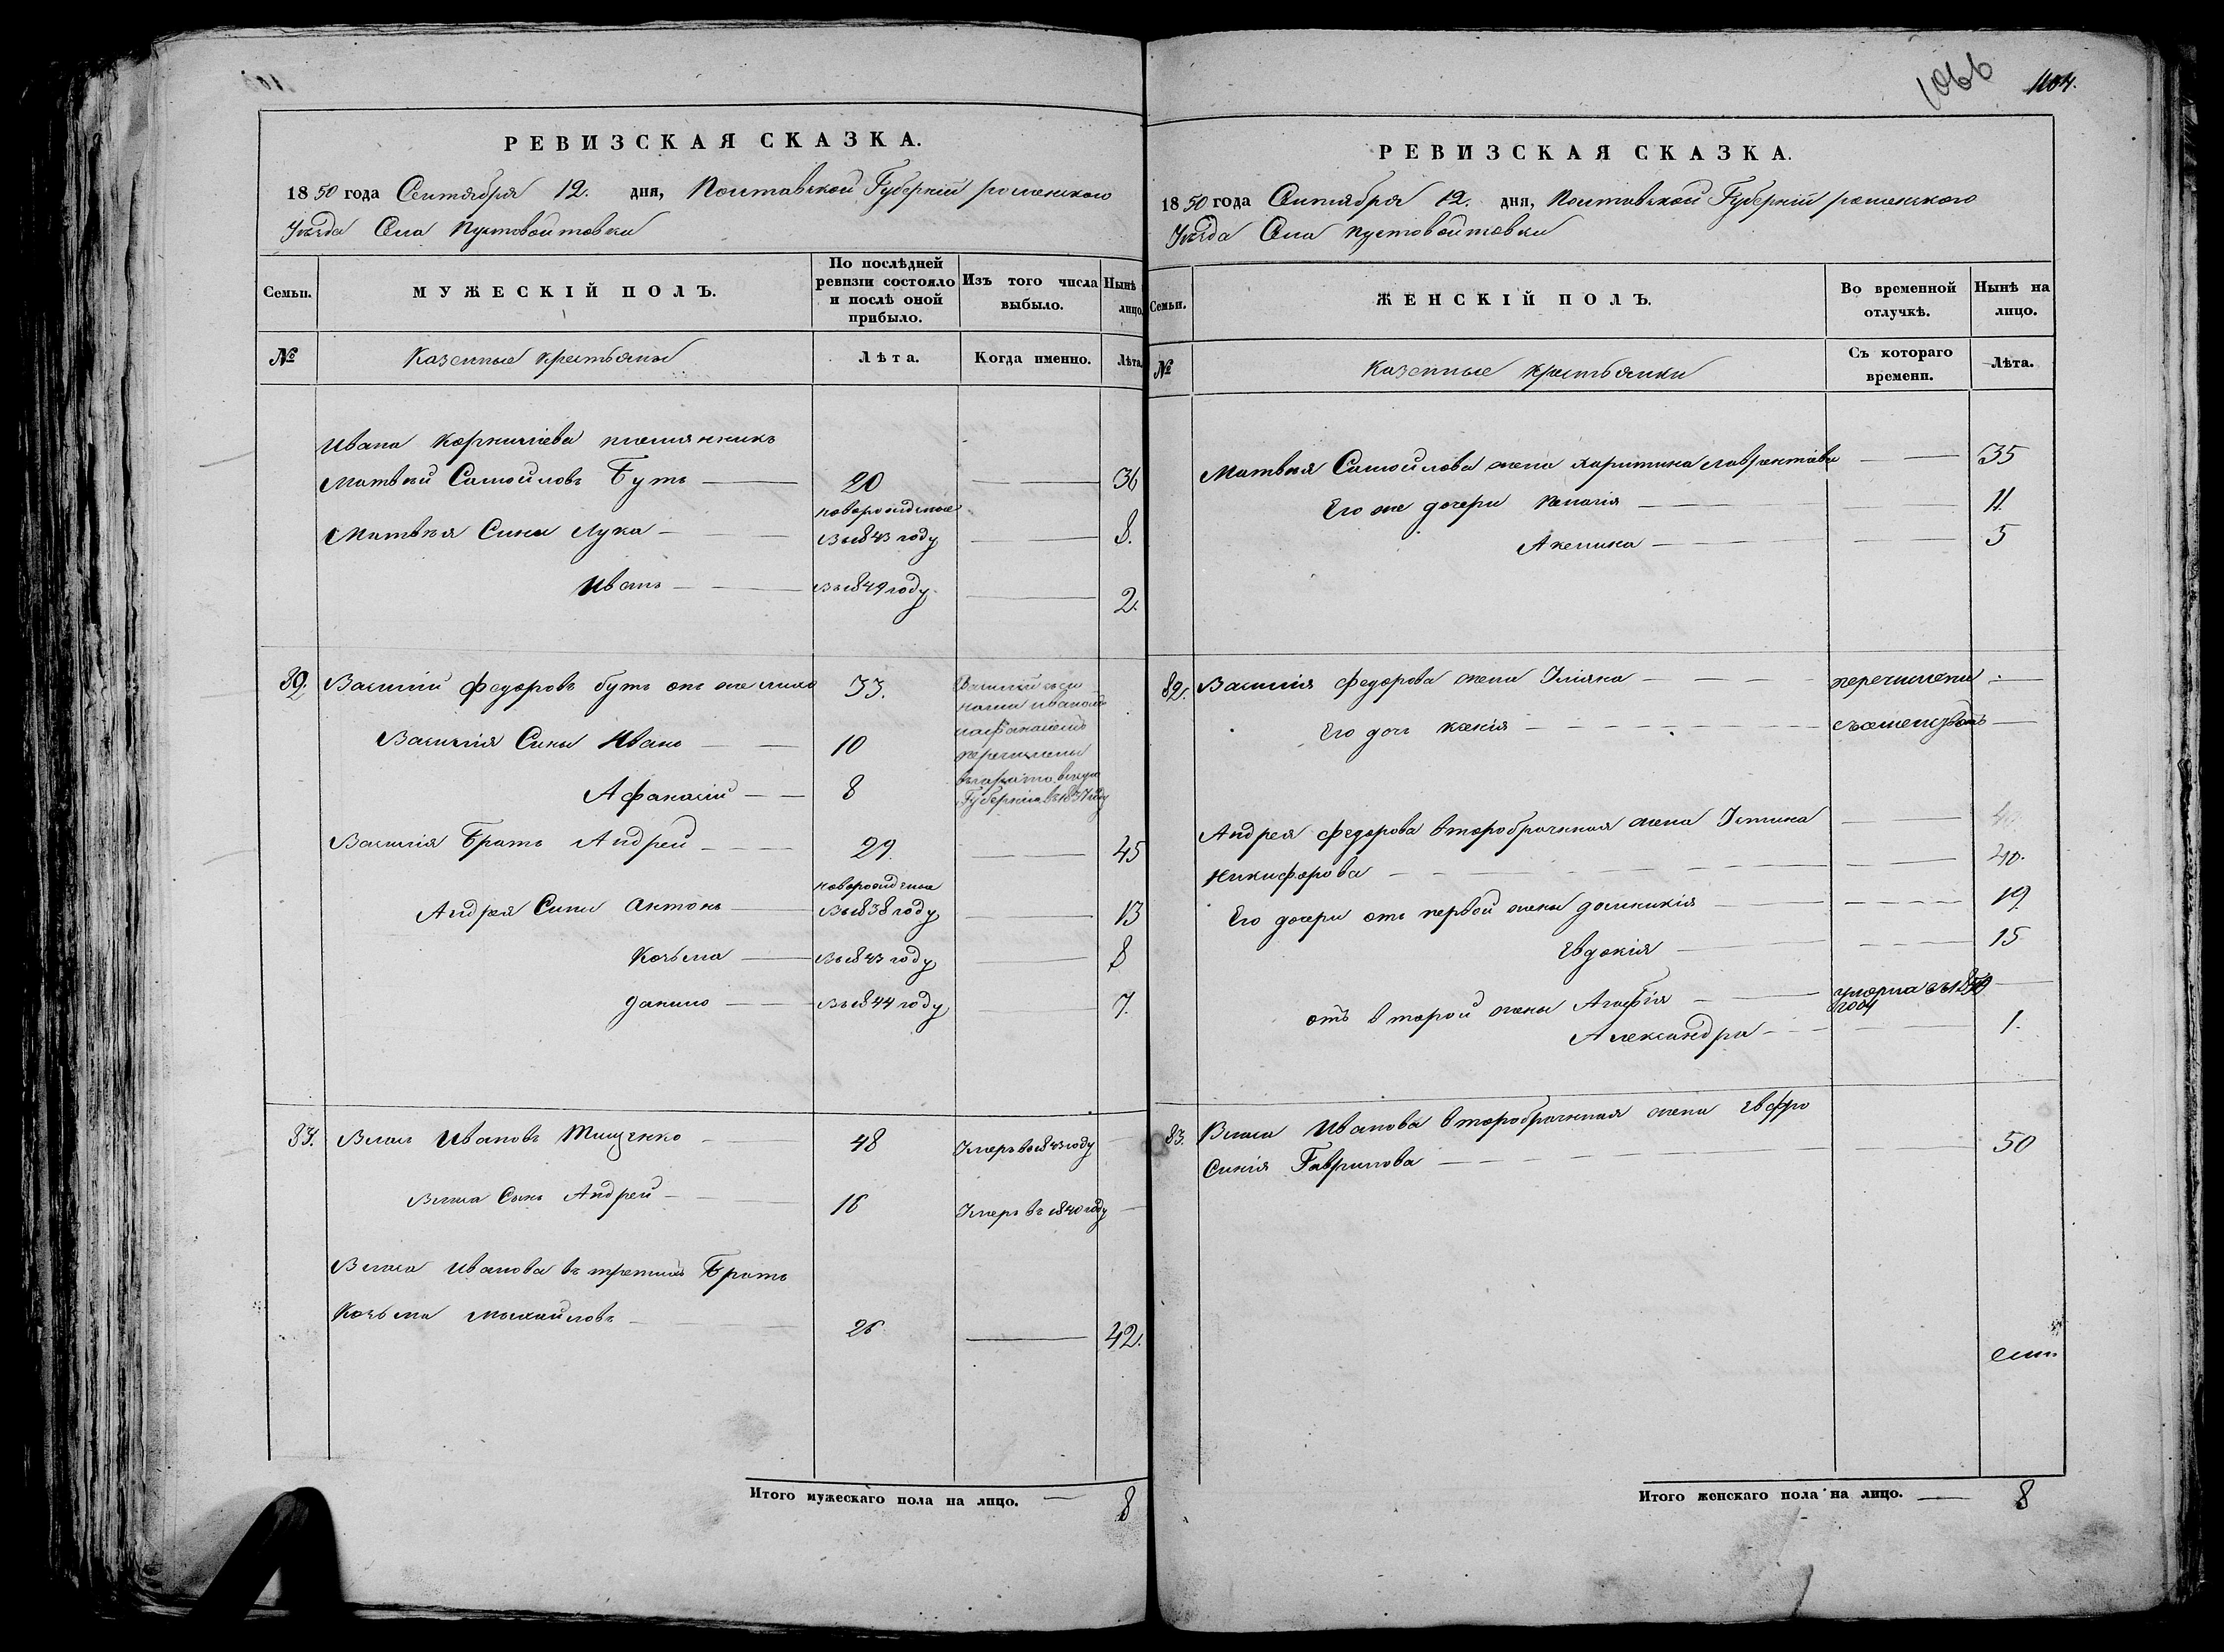 1066 1104.
РЕВИЗСКАЯ СКАЗКА.
1850 года Сентября 12. дня, Полтавской Губернии роменского
Уезда Села Пустовойтовки
Семьи.
МУЖЕСКІЙ ПОЛЪ.
По послѣдней ревизіи состояло и послѣ оной прибыло.
Изъ того числа выбыло.
Нынѣ лицо.
№
Казенные крестьяне
Лѣта.
Когда именно.
Лѣта.
Ивана Корнилиева племянникъ
Матвей Самойловъ Бутъ 20 36
новорожденные
Матвея Сины Лука в 1843 году 8.
Иванъ в 1849 году 2.
82. Василий Федоровъ бутъ он же 33.
Василий з си
нами иваномъ
иафанасиемъ
перечислены
Губернию в 1837 году
Василия Сины Иванъ 10
Афанасий 8
Василия Братъ Андрей 29. 45
новорожденные
Андрея Сини Антонъ в 1838 году 13
Козьма в 1843 году 8
данило в 1844 году 7.
83. Власъ Ивановъ Тищенко 48 Умеръ в 1843 году
Власа Сынъ Андрей 16 Умеръ въ 1840 году
Власа Иванова въ третихъ Братъ
Козьма Михайловъ 26 42.
Итого мужескаго пола на лицо. 8
РЕВИЗСКАЯ СКАЗКА.
1850 года Сентября 12. дня, Полтавской Губернии роменского
Уезда Села пустовойтовки
Семьи.
ЖЕНСКІЙ ПОЛЪ.
Во временной отлучкѣ.
Нынѣ на лицо.
№
Казенные крестьянки
Съ котораго времени.
Лѣта.
Матвея Самойлова жена харитина лаврентиева 35
Его же дочери 11.
Акелина 5
82. Василия Федорова жена Улияна перечислены
Его доч ксения съ
Андрея Федорова второбрачная жена Устина
Никифорова 40.
Его дочери отъ первой жены домникия 19
Евдокия 15
отъ второй жены Агафия умерла
году
Александра 1.
83. Власа Иванова второбрачная жена Евфро
синия Гаврилова 50
Итого женскаго пола на лицо. 8